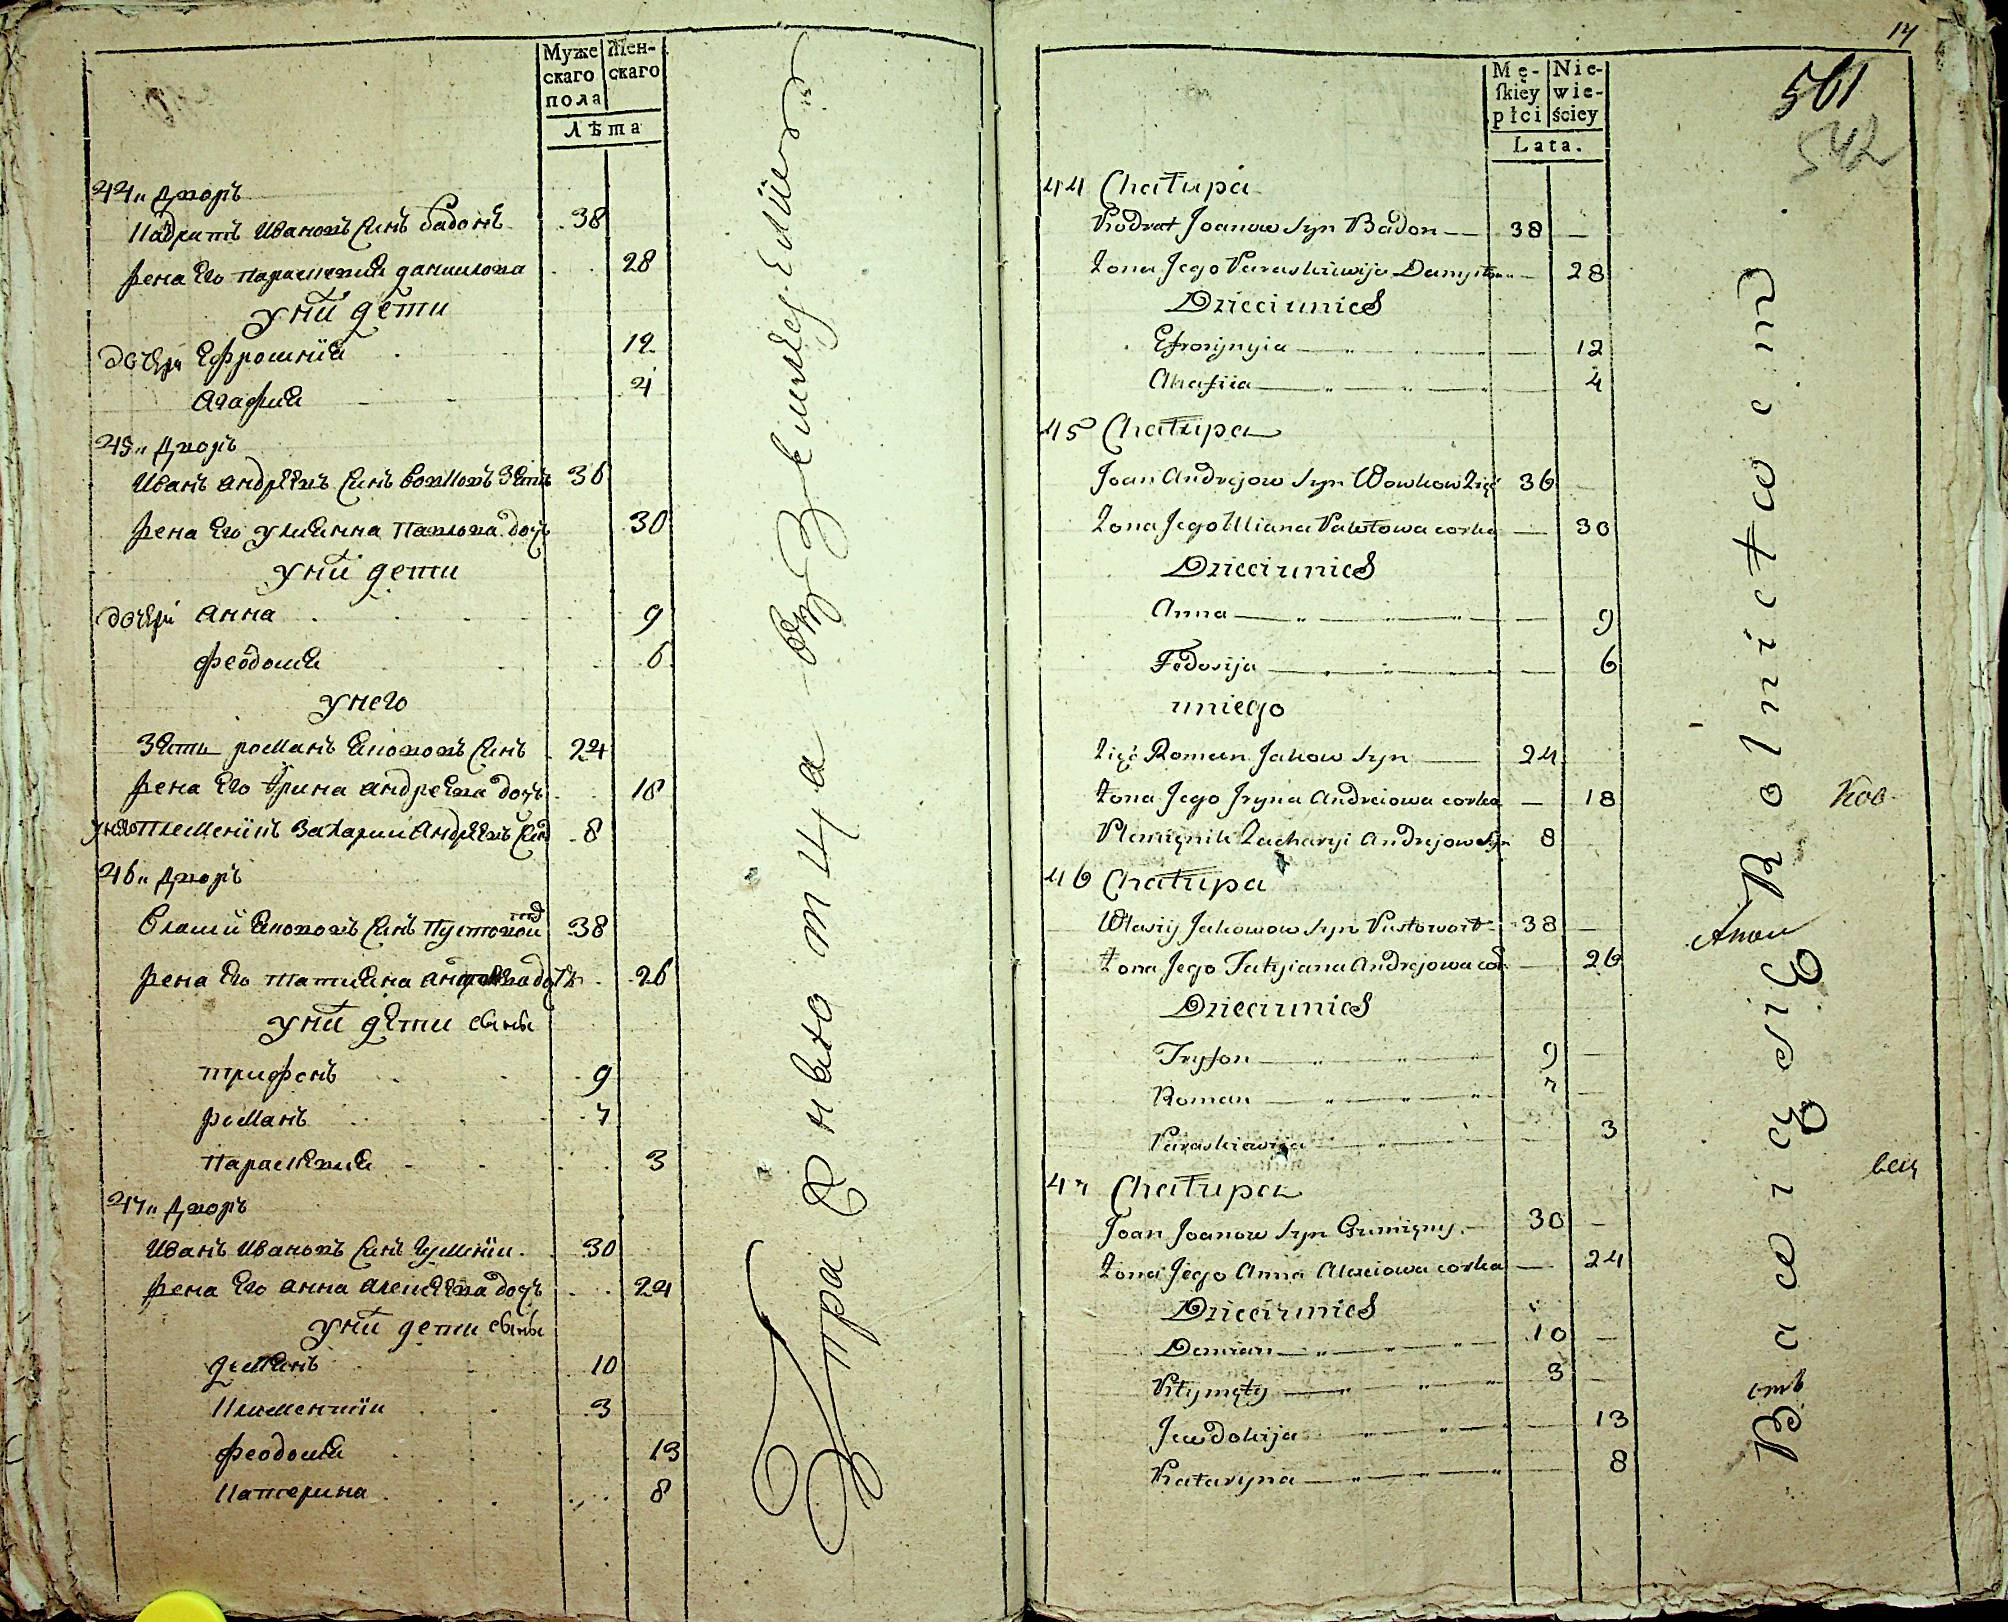 Муже
скаго
пола
Жен-
скаго
Лѣта
44 Дворъ
Кадратъ Ивановъ Синъ бадонъ 38
Жена Его параскевия данилова 28
у нихъ дети
дочери Ефросинія 12
Агафия 4
45 Дворъ
Иванъ андреевъ Синъ вовковъ Зять 36
Жена Его улиянна Павлова дочь 30
у нихъ дети
дочери анна 9
феодосия 6
у него
Зять романъ якововъ Синъ 24
Жена Его Ірина андреева дочь 18
у него племеникъ Захарии Андреевъ Синъ 8
46 Дворъ
Власий якововъ Синъ Пустовой 38
Жена Его татияна андреева дочь 26
у нихъ дети сыны
трифонъ 9
романъ 7
Параскевия 3
47 Дворъ
Иванъ Ивановъ Синъ Гуменiи 30
Жена Его анна алексеева дочь 24
у нихъ дети сыны
демянъ 10
Климентии 3
феодосия 13
Катерина 8
Mę-
ſkiey
płci
Nie-
wie-
ściey
Lata.
14
561
542
44 Chałupa
Kodrat Joanow syn Badon 38
Żona Jego Paraskiewija 28
Dzieci u nich
Efrosynyia 12
Ahafiia 4
45 Chałupa
Joan Andrejow syn Wowkow Zięć 36
Żona Jego Uliana Pawłowa corka 30
Dzieci u nich
Anna 9
Fedosija 6
u niego
Zięć Roman Jakow syn 24
Żona Jego Jryna Andreiowa corka 18
Plemięnik Zacharyi Andrejow syn 8
46 Chałupa
Własiy Jakowow syn Pustowoit 38
Żona Jego Tatyiana Andrejowa cor 26
Dzieci u nich
Tryfon 9
Roman 7
Paraskiewija 3
47 Chałupa
Joan Joanow syn Gumięny 30
Żona Jego Anna Alexiowa corka 24
Dzieci u nich
Demian 10
3
Jewdokija 13
Kataryna 8
Bawiące się Rolnictwem